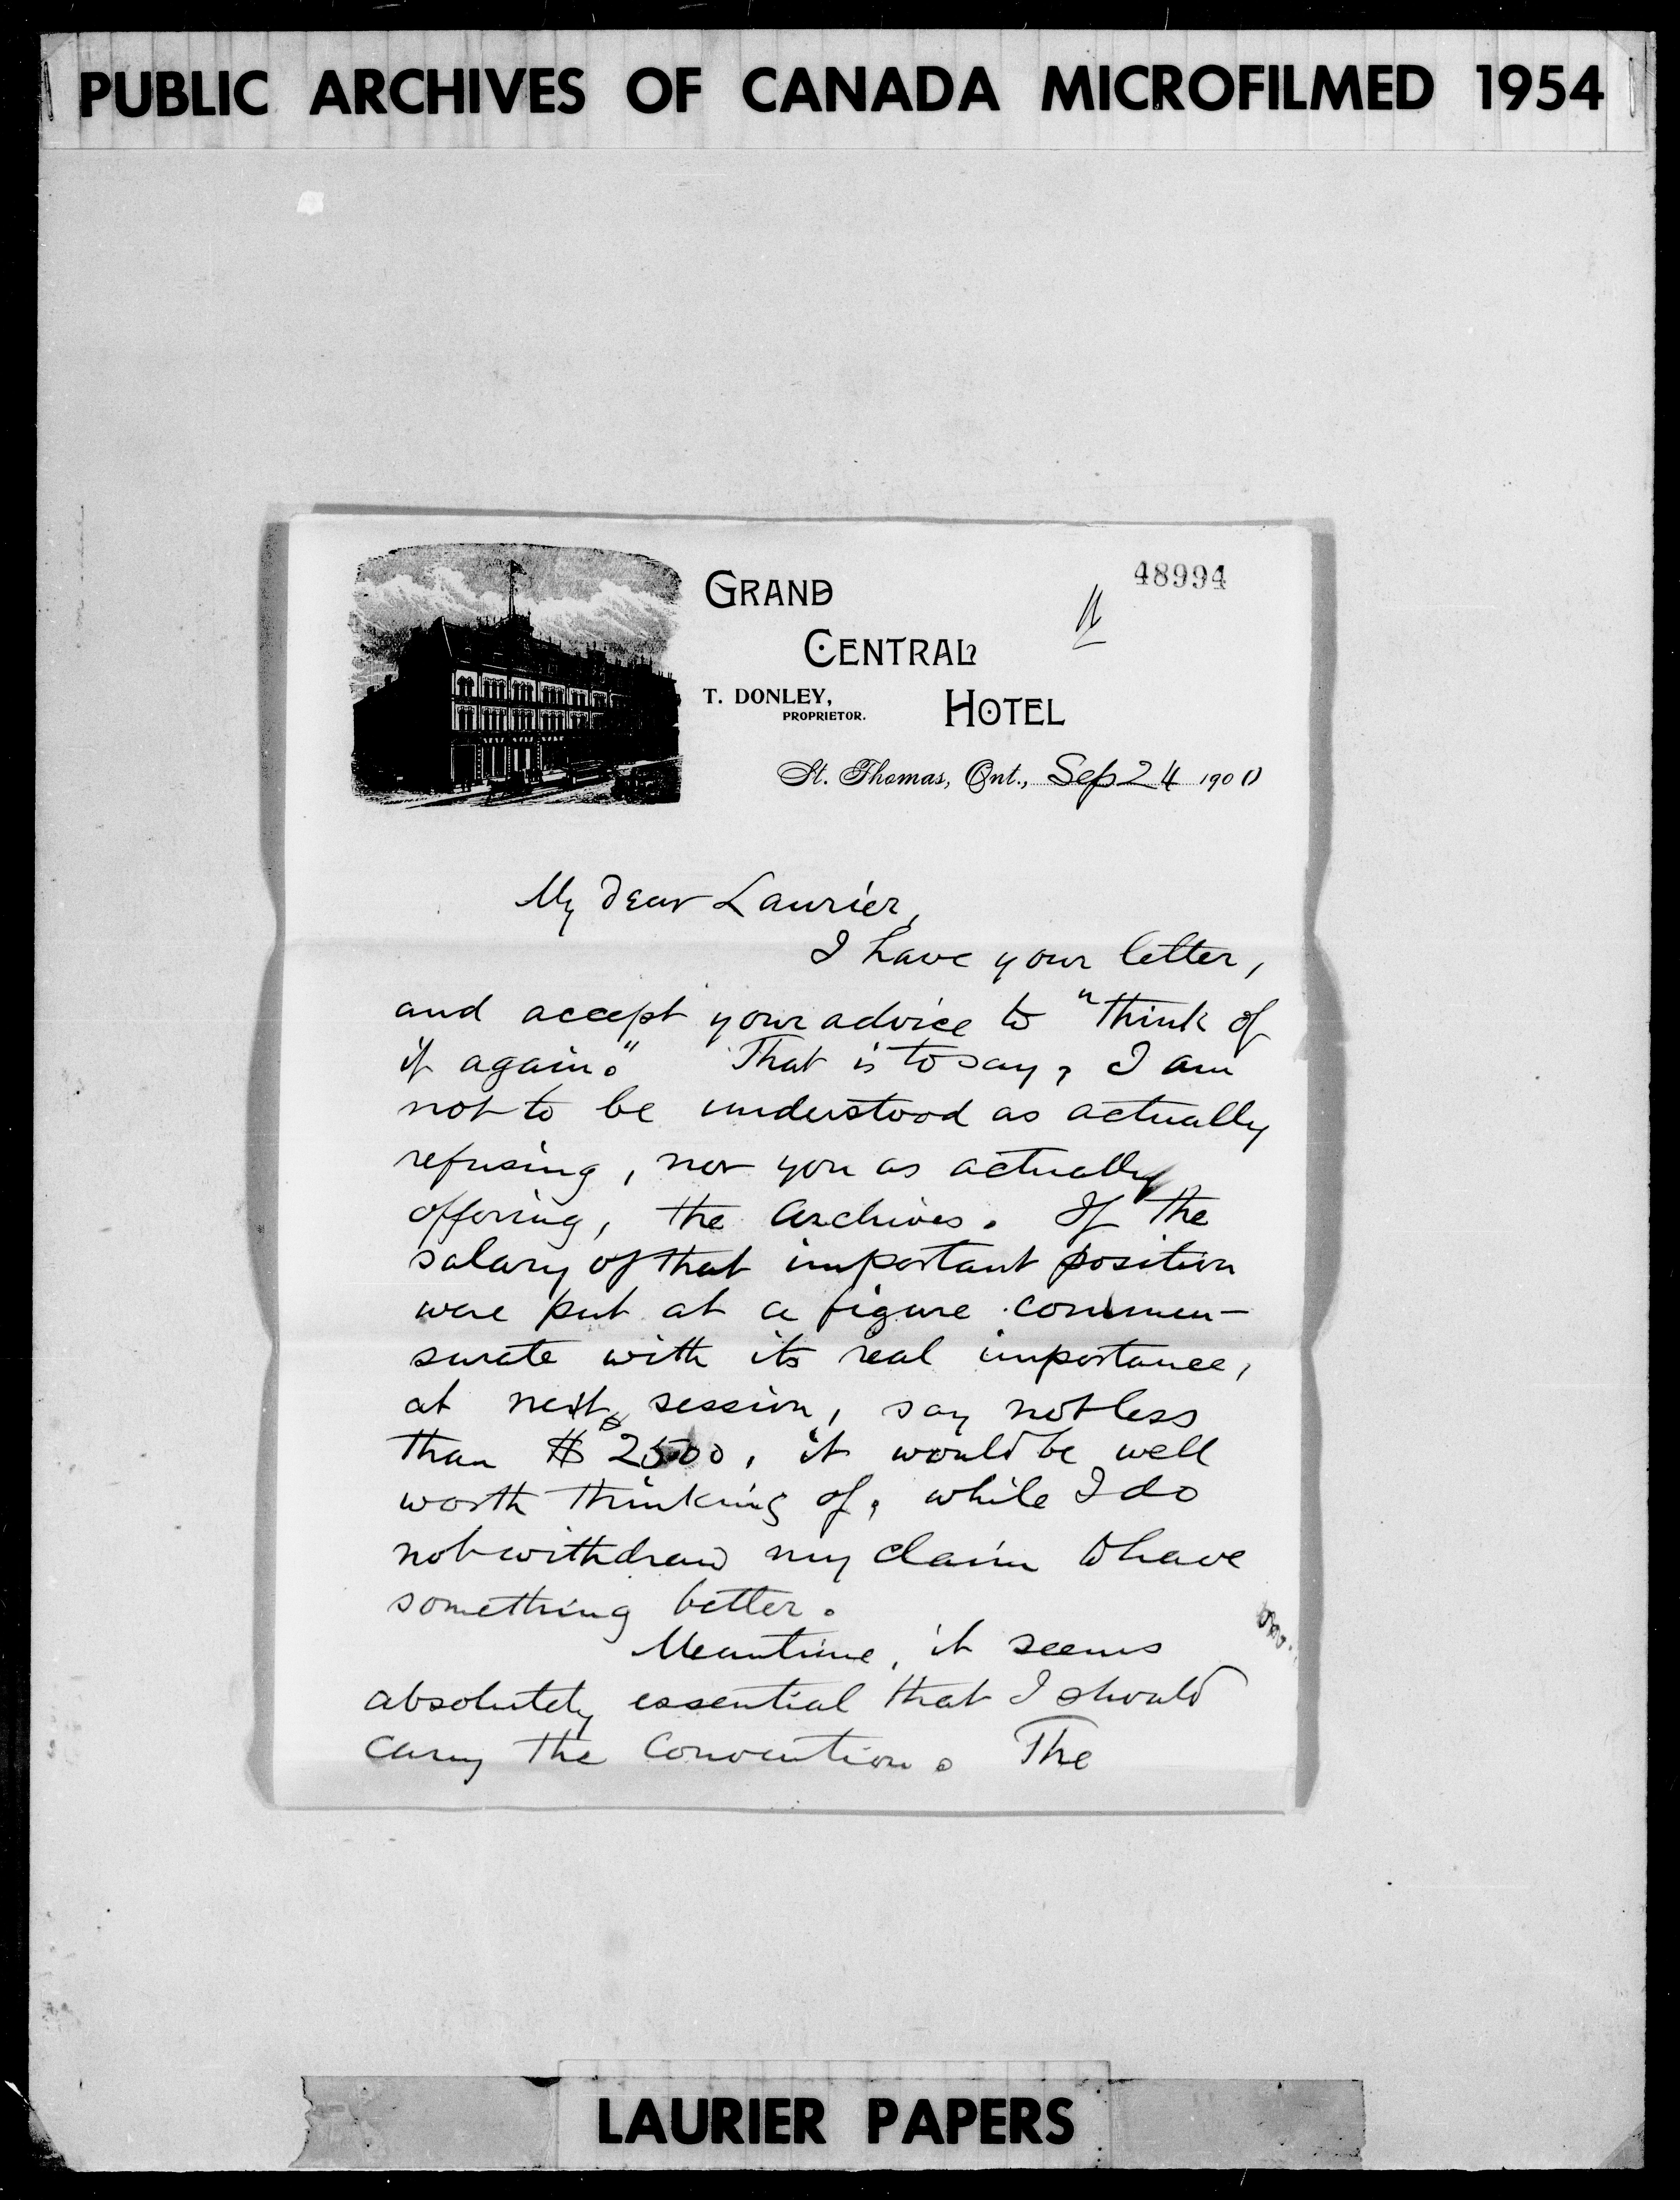 PUBLIC ARCHIVES OF CANADA MICROFILMED 1954
48994
GRAND
CENTRAL
T. DONLEY,
PROPRIETOR.
HOTEL
St. Thomas, Ont., Sep 24 1900
My dear Laurier,
I have your letter,
and accept your advice to "think of
it again." That is to say, I am
not to be understood as actually
refusing, nor you as actually
offering, the Archives. If the
salary of that important position
were put at a figure commen-
surate with its real importance,
at next session, say not less
than $2500, it would be well
worth thinking of, while I do
not withdraw my claim to have
something better.
Meantime, it seems
absolutely essential that I should
carry the Convention. The
LAURIER PAPERS